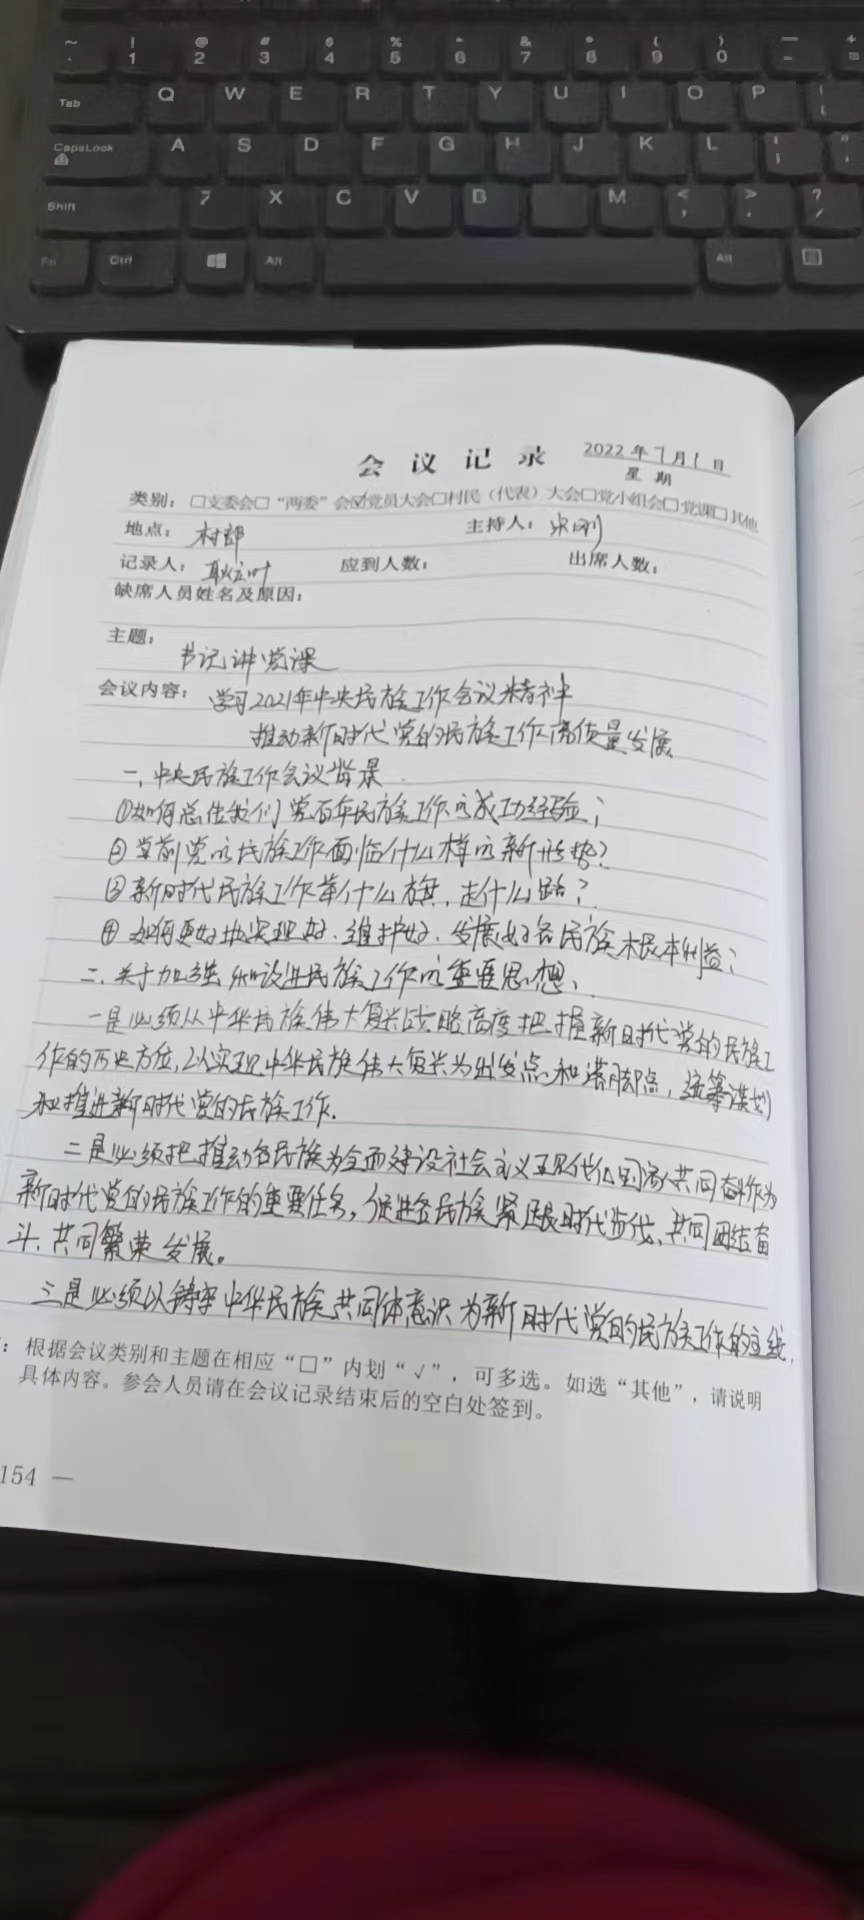 ~ ! @ # $ % ^ & * ( ) — +
· 1 2 3 4 5 6 7 8 9 0 - =
Tab Q W E R T Y U I O P {
CapsLock A S D F G H J K L
Shift Z X C V B M < , > . ? /
Fn Ctrl Alt Alt
会议记录
2022年7月1日
星期
类别：□支委会□“两委”会☑党员大会□村民（代表）大会□党小组会□党课□其他
地点：村部 主持人：宋刚
记录人：耿立叶 应到人数： 出席人数：
缺席人员姓名及原因：
主题：
书记讲党课
会议内容：学习2021年中央民族工作会议精神
推动新时代党的民族工作高质量发展
一、中央民族工作会议背景
①如何总结我们党百年民族工作的成功经验；
②当前党的民族工作面临什么样的新形势？
③新时代民族工作举什么旗，走什么路？
④如何更好地实现好、维护好、发展好各民族根本利益；
二、关于加强和改进民族工作的重要思想、
一是必须从中华民族伟大复兴战略高度把握新时代党的民族工
作的历史方位，以实现中华民族伟大复兴为出发点和落脚点，统筹谋划
和推进新时代党的民族工作.
二是必须把推动各民族为全面建设社会主义现代化国家共同奋斗作为
新时代党的民族工作的重要任务，促进各民族紧跟时代步伐，共同团结奋
斗、共同繁荣发展。
三是必须以铸牢中华民族共同体意识为新时代党的民族工作的主线，
：根据会议类别和主题在相应“□”内划“√”，可多选。如选“其他”，请说明
具体内容。参会人员请在会议记录结束后的空白处签到。
154 —